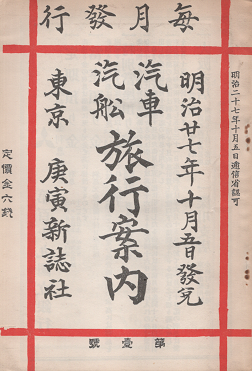 行發月毎
明治二十七年十月五日逓信省認可
明治廿七年十月五日發兌
汽車
汽舩
旅行案内
東京 庚寅新誌社
定價金六錢
號壹第